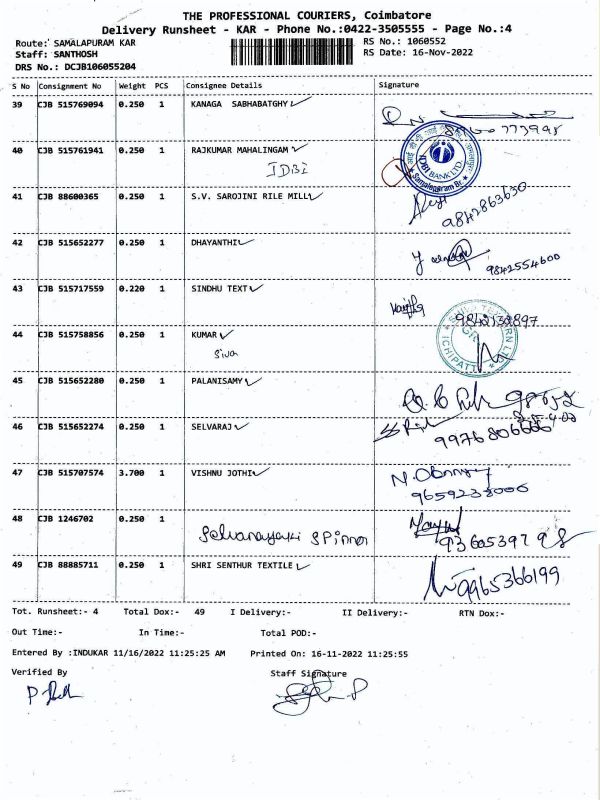 THE PROFESSIONAL COURIERS, Coimbatore
Delivery Runsheet - KAR - Phone No.:0422-3505555 - Page No.:4
Route: SAMALAPURAM KAR
RS No.: 1060552
Staff: SANTHOSH
RS Date: 16-Nov-2022
DRS No.: DCJB106055204
S No Consignment No Weight PCS Consignee Details Signature
39 CJB 515769094 0.250 1 KANAGA SABHABATGHY
40 CJB 515761941 0.250 1 RAJKUMAR MAHALINGAM
IDBI
IDBI BANK LTD.
Samalapuram Br.
41 CJB 88600365 0.250 1 S.V. SAROJINI RILE MILL
9842863630
42 CJB 515652277 0.250 1 DHAYANTHI
9842554600
43 CJB 515717559 0.220 1 SINDHU TEXT
44 CJB 515758856 0.250 1 KUMAR
Siva
45 CJB 515652280 0.250 1 PALANISAMY
46 CJB 515652274 0.250 1 SELVARAJ
47 CJB 515707574 3.700 1 VISHNU JOTHI
48 CJB 1246702 0.250 1 Selvanayaki Spinner
49 CJB 88885711 0.250 1 SHRI SENTHUR TEXTILE
9965366199
Tot. Runsheet:- 4 Total Dox:- 49 I Delivery:- II Delivery:- RTN Dox:-
Out Time:- In Time:- Total POD:-
Entered By :INDUKAR 11/16/2022 11:25:25 AM Printed On: 16-11-2022 11:25:55
Verified By Staff Signature